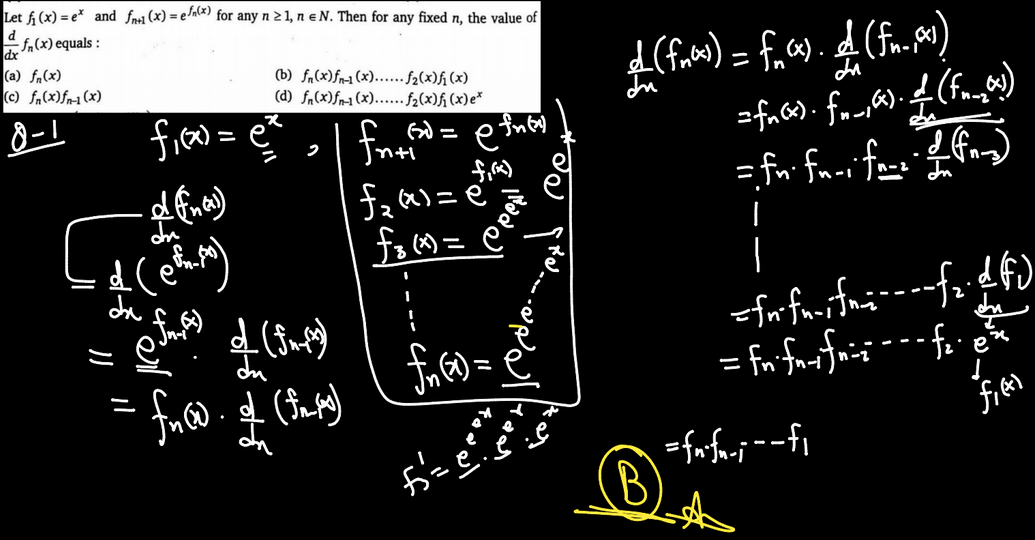 Let f₁(x) = eˣ and fₙ₊₁(x) = e^{fₙ(x)} for any n ≥ 1, n ∈ N. Then for any fixed n, the value of
d/dx fₙ(x) equals :
(a) fₙ(x)
(b) fₙ(x)fₙ₋₁(x)......f₂(x)f₁(x)
(c) fₙ(x)fₙ₋₁(x)
(d) fₙ(x)fₙ₋₁(x)......f₂(x)f₁(x)eˣ
Q-1
f₁(x) = eˣ ,
d/dx (fₙ(x))
= d/dx (e^{fₙ₋₁(x)})
= e^{fₙ₋₁(x)} · d/dx (fₙ₋₁(x))
= fₙ(x) · d/dx (fₙ₋₁(x))
fₙ₊₁(x) = e^{fₙ(x)}
f₂(x) = e^{f₁(x)} = e^{eˣ}
f₃(x) = e^{e^{eˣ}} →
fₙ(x) = e^{e^{e^{....eˣ}}}
f₃' = e^{e^{eˣ}} · e^{eˣ} · eˣ
d/dx (fₙ(x)) = fₙ(x) · d/dx (fₙ₋₁(x))
= fₙ(x) · fₙ₋₁(x) · d/dx (fₙ₋₂(x))
= fₙ · fₙ₋₁ · fₙ₋₂ · d/dx (fₙ₋₃)
= fₙ · fₙ₋₁ fₙ₋₂ ------ f₂ · d/dx (f₁)
= fₙ · fₙ₋₁ fₙ₋₂ ------ f₂ · eˣ
f₁(x)
= fₙ · fₙ₋₁ --- f₁
B